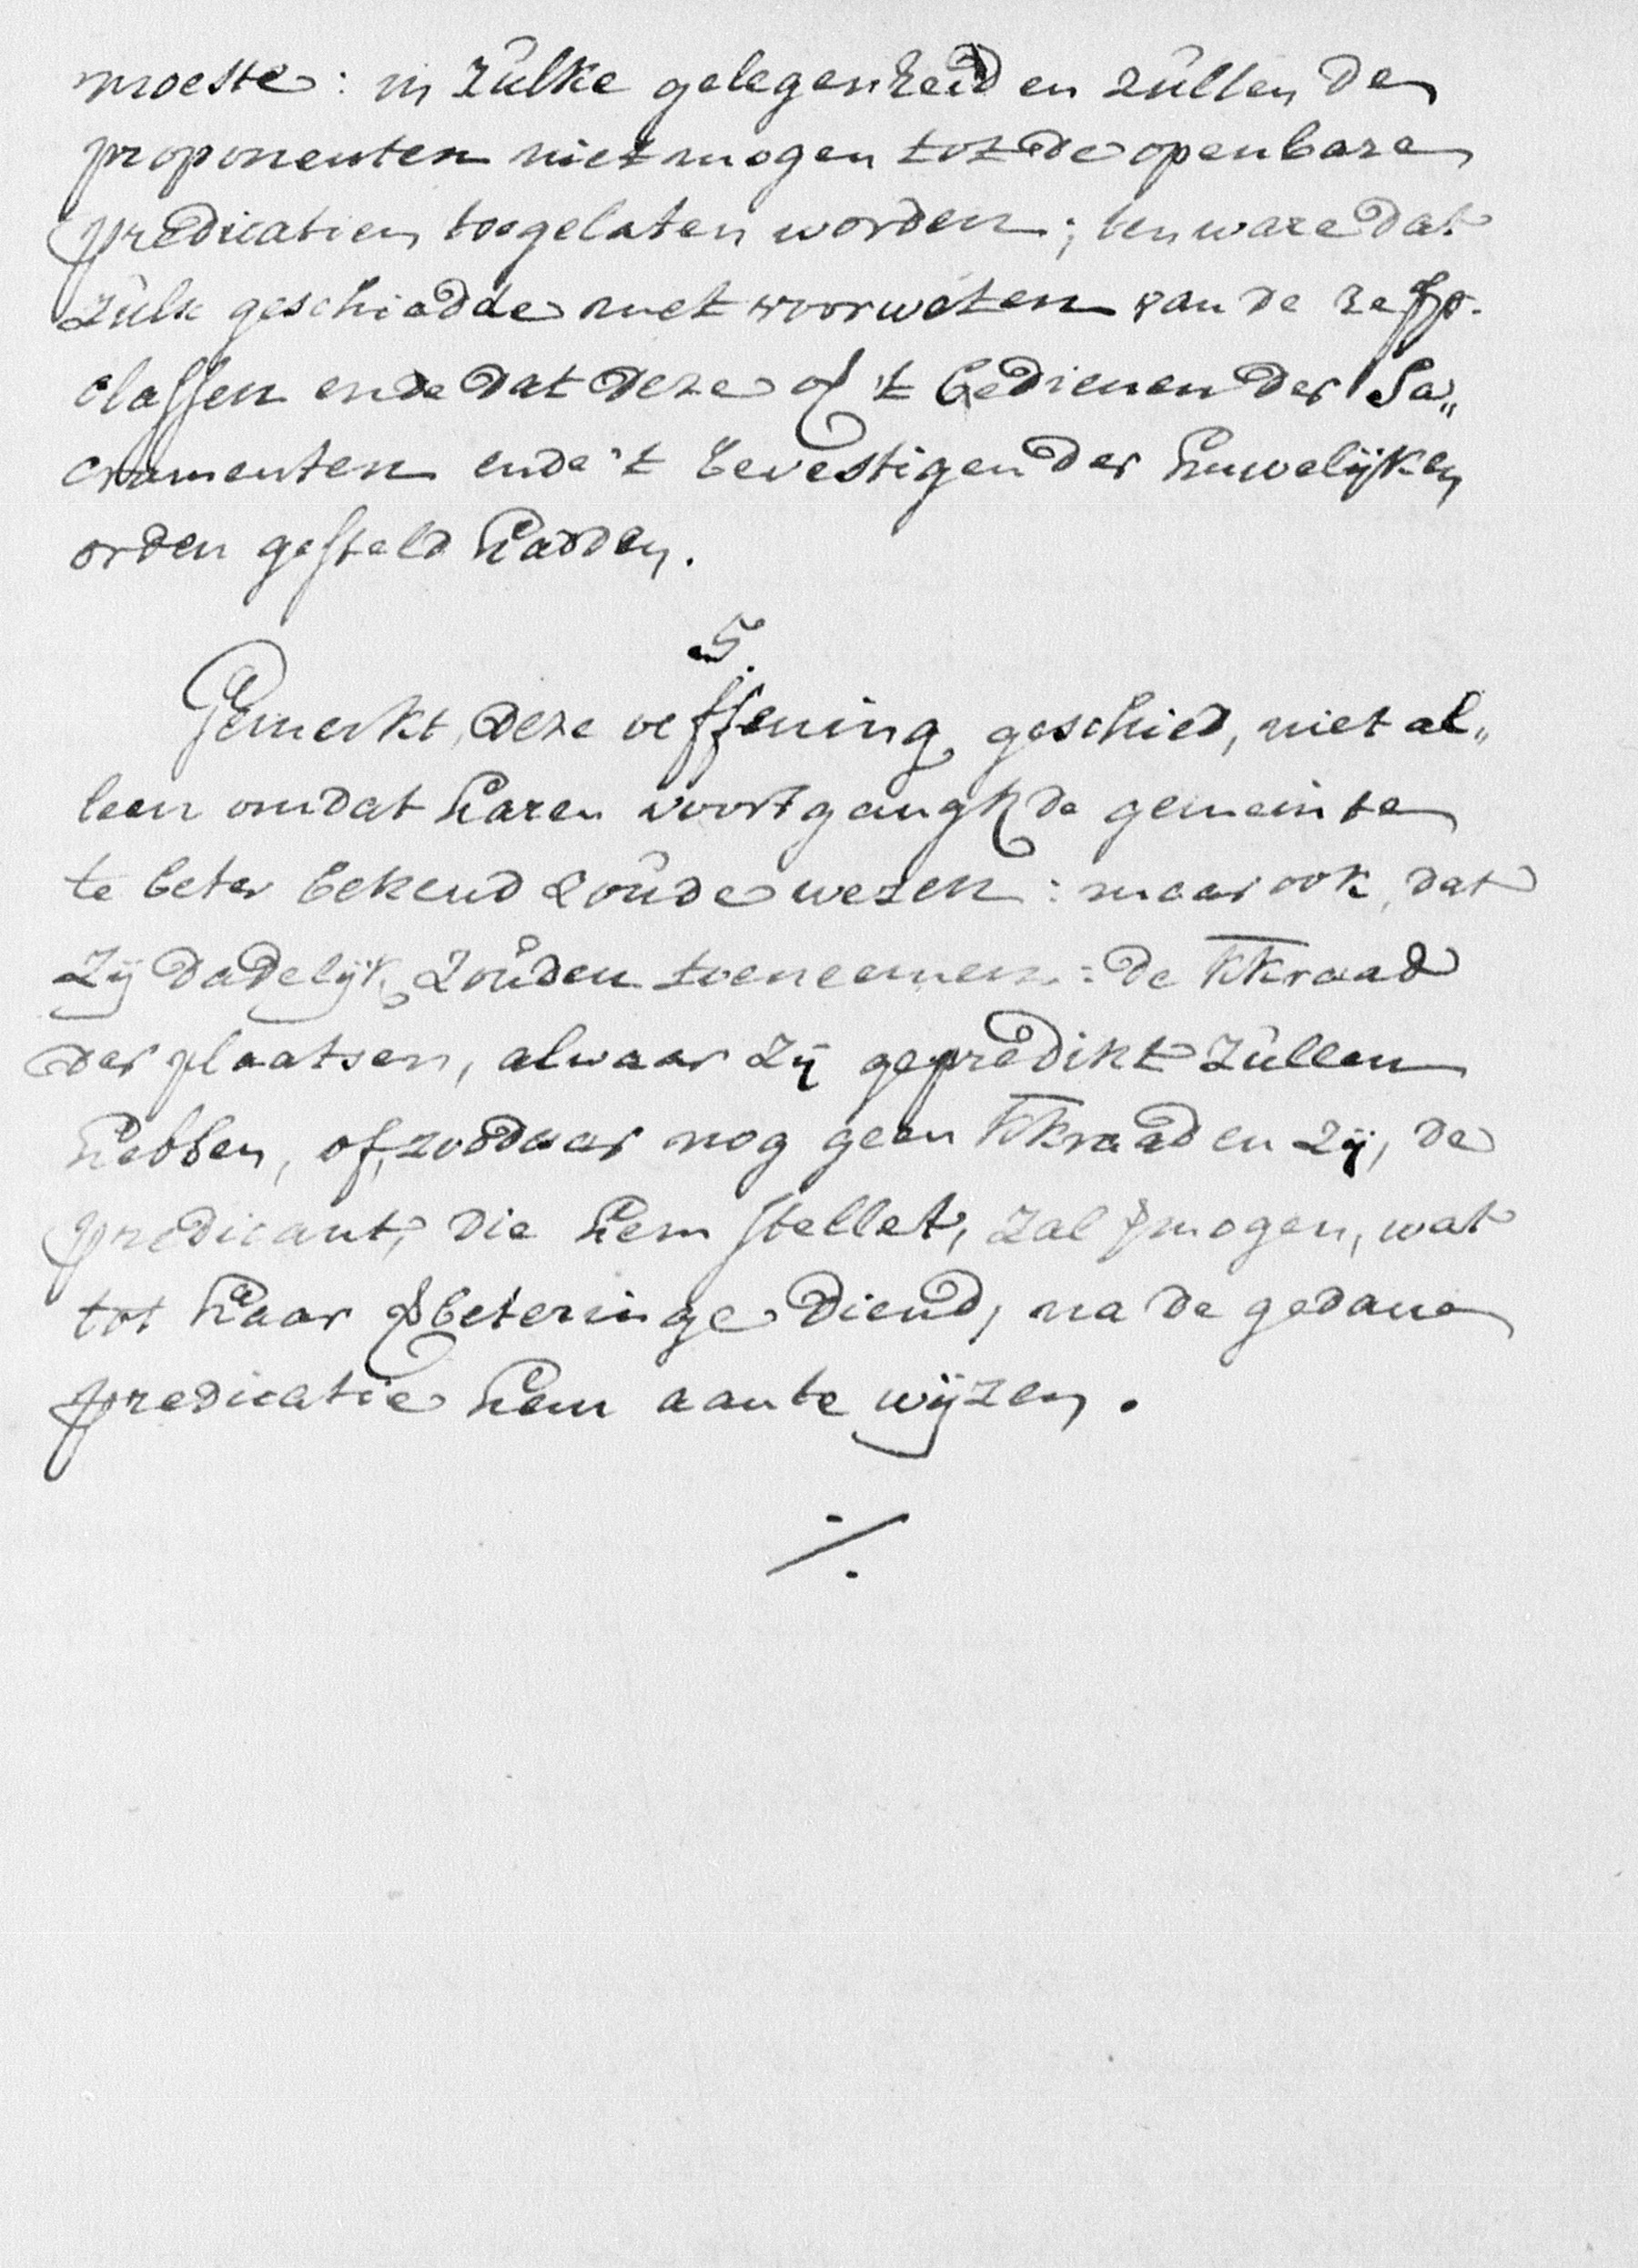 moeste: in zulke gelegenheiden zullen de
proponenten niet mogen tot de openbare
predicatien toegelaten worden; ten ware dat
zulk geschiedde met voorweten van de resp.
classen ende dat deze op 't bedienen der Sa„
cramenten ende 't bevestigen der huwelijken
orden gesteld hadden.
5.
Gemerkt, deze oeffening geschied, niet al„
leen omdat haren voortgangk de gemeinte
te beter bekend zoude wezen: maar ook, dat
zij dadelijk zouden toeneemen: de KKraad
der plaatsen, alwaar zij gepredikt zullen
hebben, of, zoo daar nog geen KKraad en zij, de
predicant, die hem stellet, zal vmogen, wat
tot haar vbeteringe diend, na de gedane
predicatie hem aan te wijzen.
./.